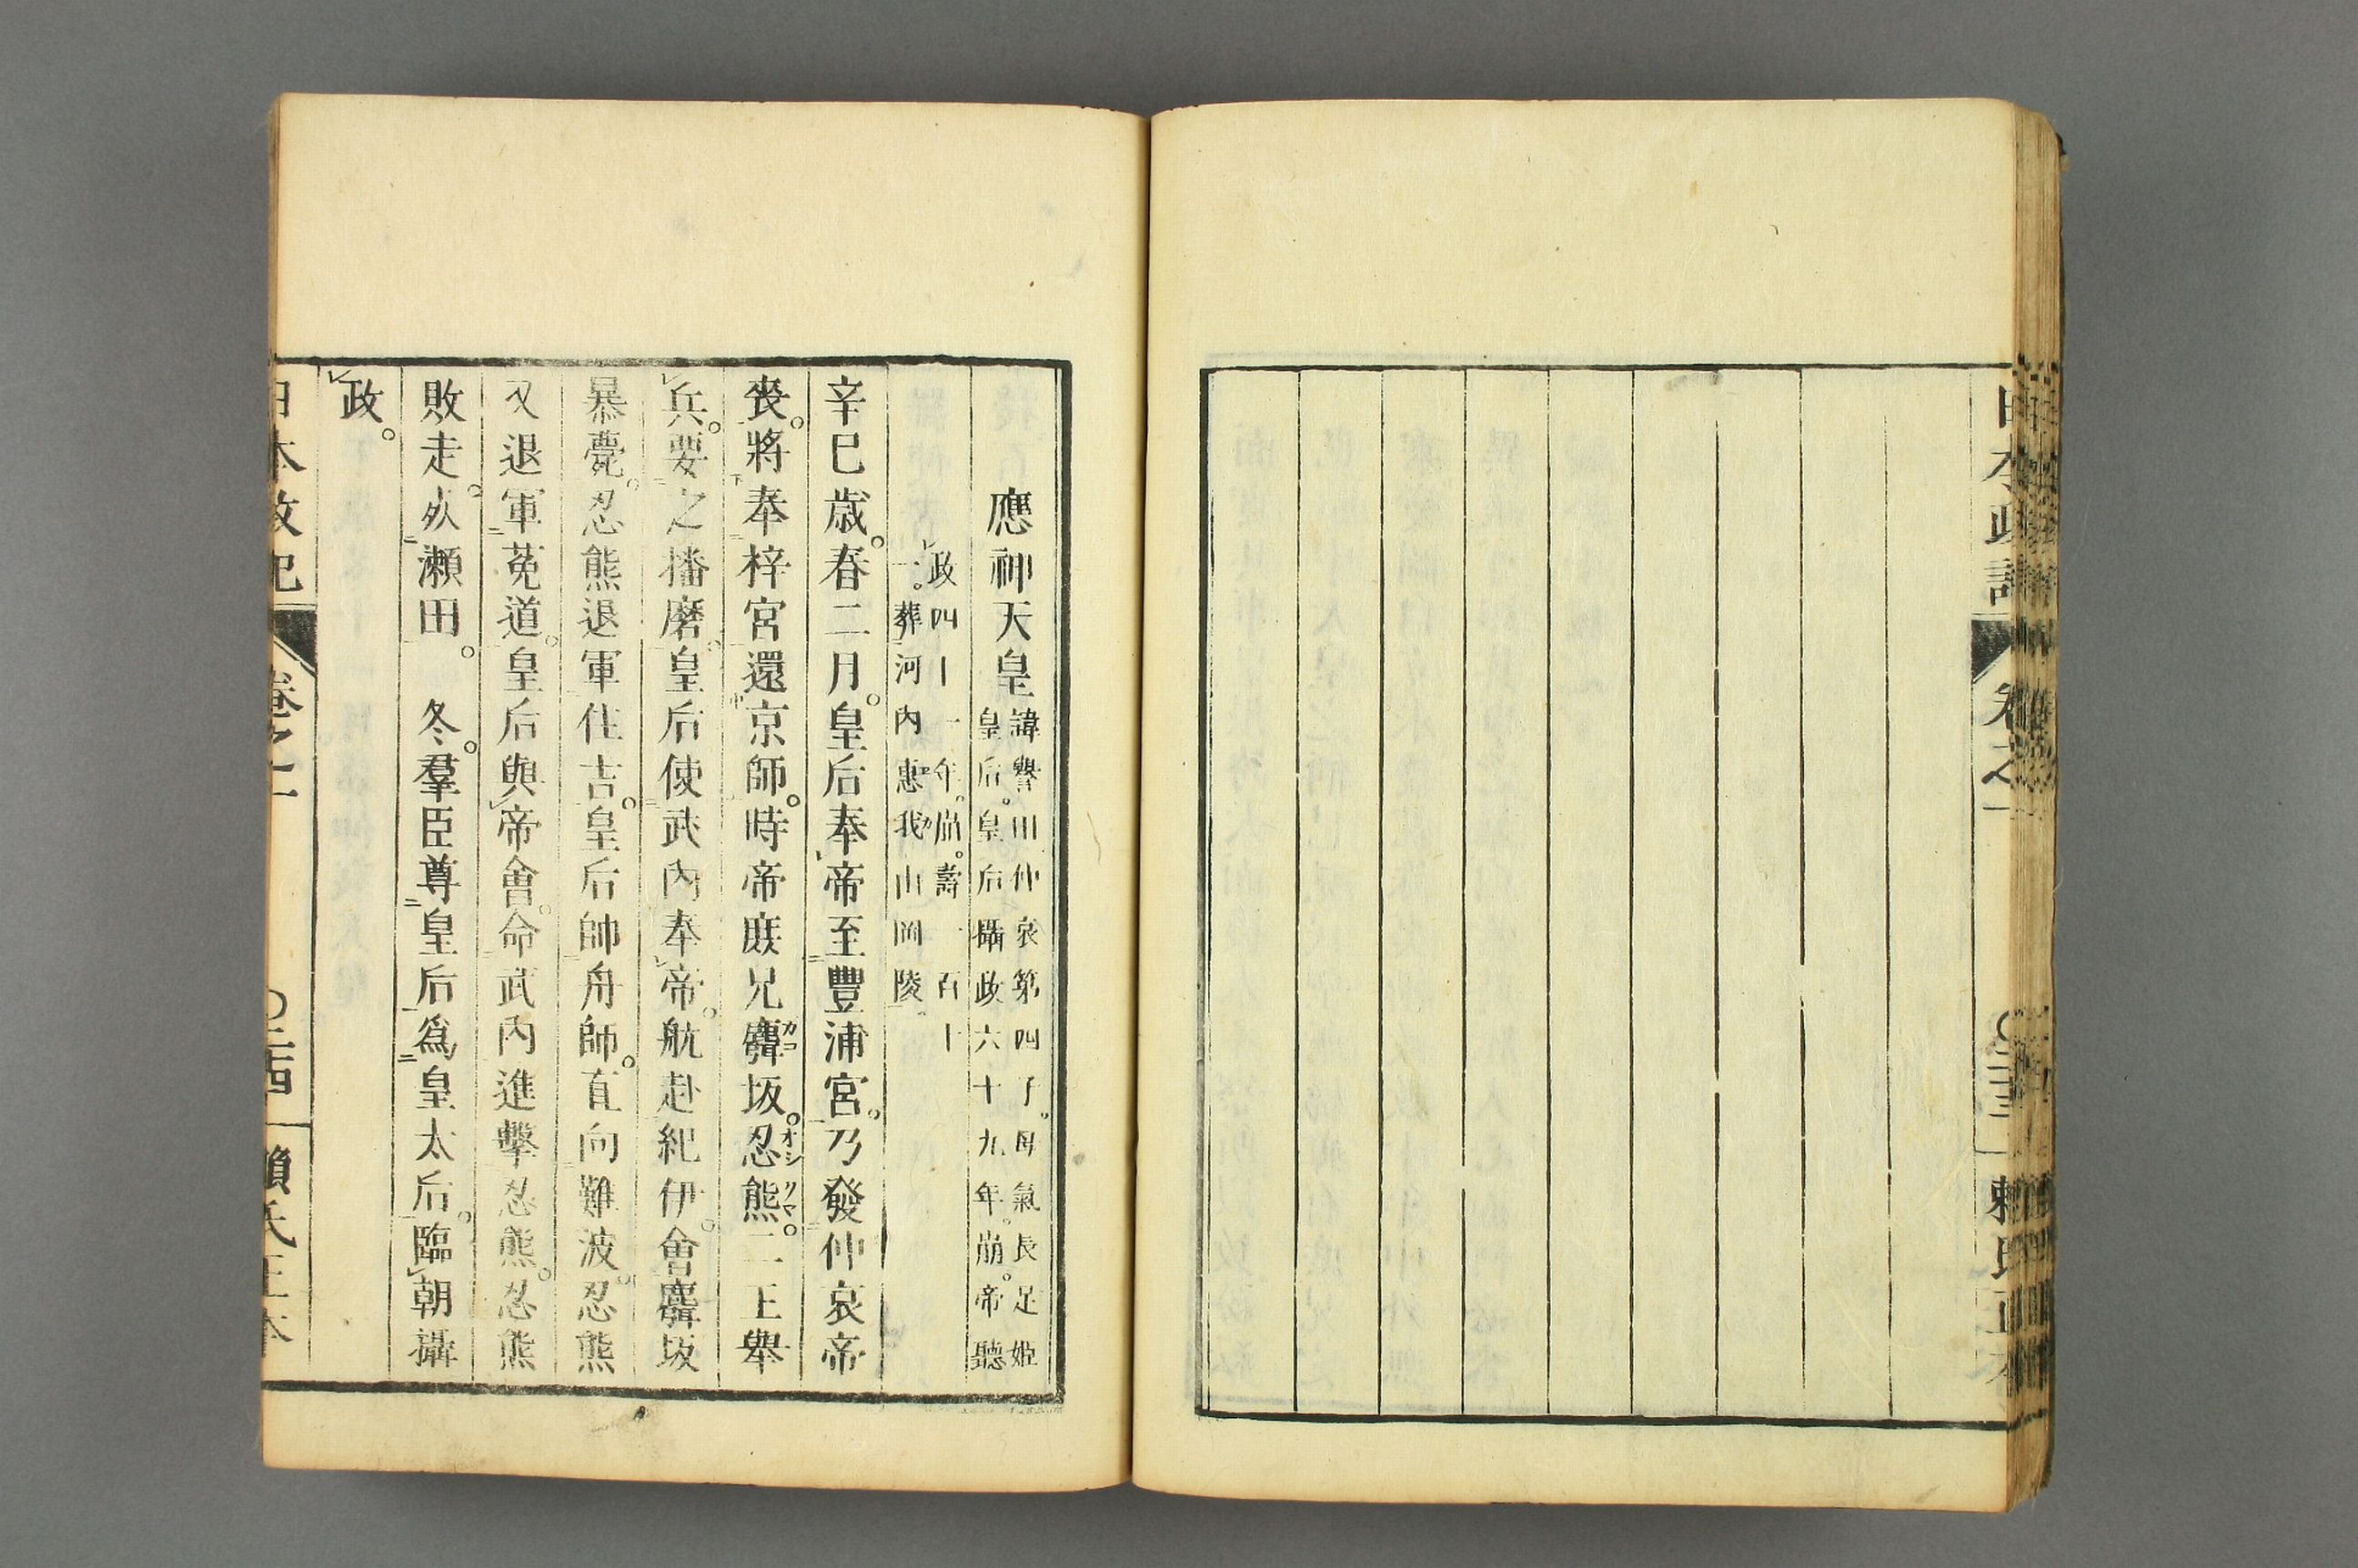 日本政記 卷之一 〇二十三 賴氏正本
應神天皇 諱譽田仲哀第四子。母氣長足姬
皇后。皇后攝政六十九年。崩。帝聽
政四十一年。崩。壽一百十
一。葬河內惠我山岡陵。
辛巳歳。春二月。皇后奉帝至豐浦宮。乃發仲哀帝
喪。將奉梓宮還京師。時帝庶兄麛坂。忍熊。二王舉
兵。要之播磨。皇后使武內奉帝。航赴紀伊。會麛坂
暴薨。忍熊退軍住吉。皇后帥舟師。直向難波。忍熊
又退軍菟道。皇后與帝會。命武內進擊忍熊。忍熊
敗走。死瀬田。 冬。羣臣尊皇后爲皇太后。臨朝攝
政。
日本政記 卷之一 〇二十四 賴氏正本